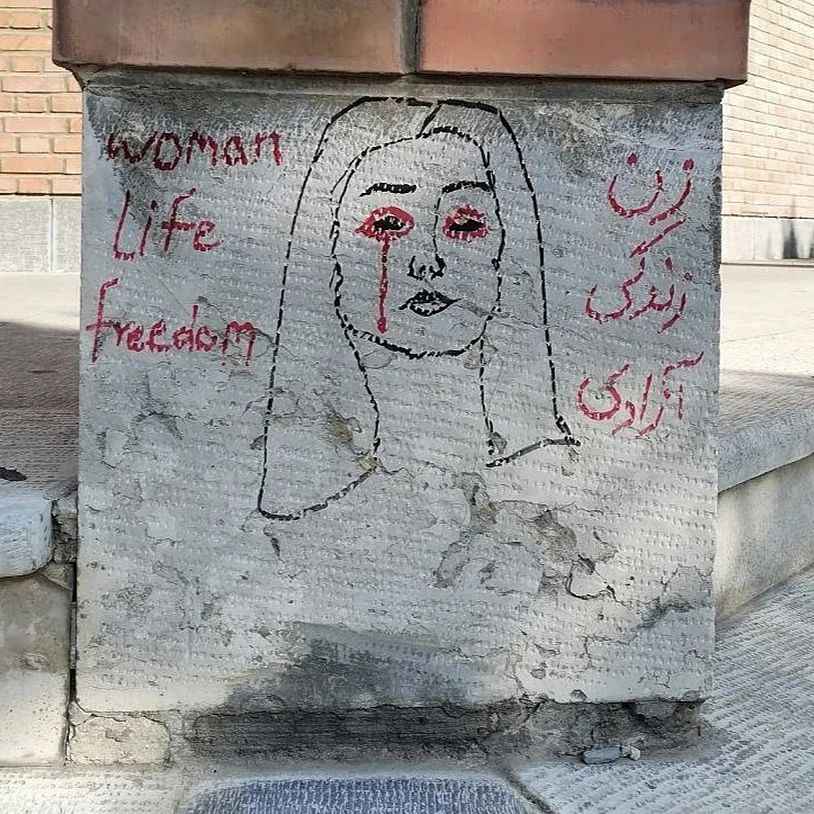 woman
Life
freedom
زن
زندگی
آزادی